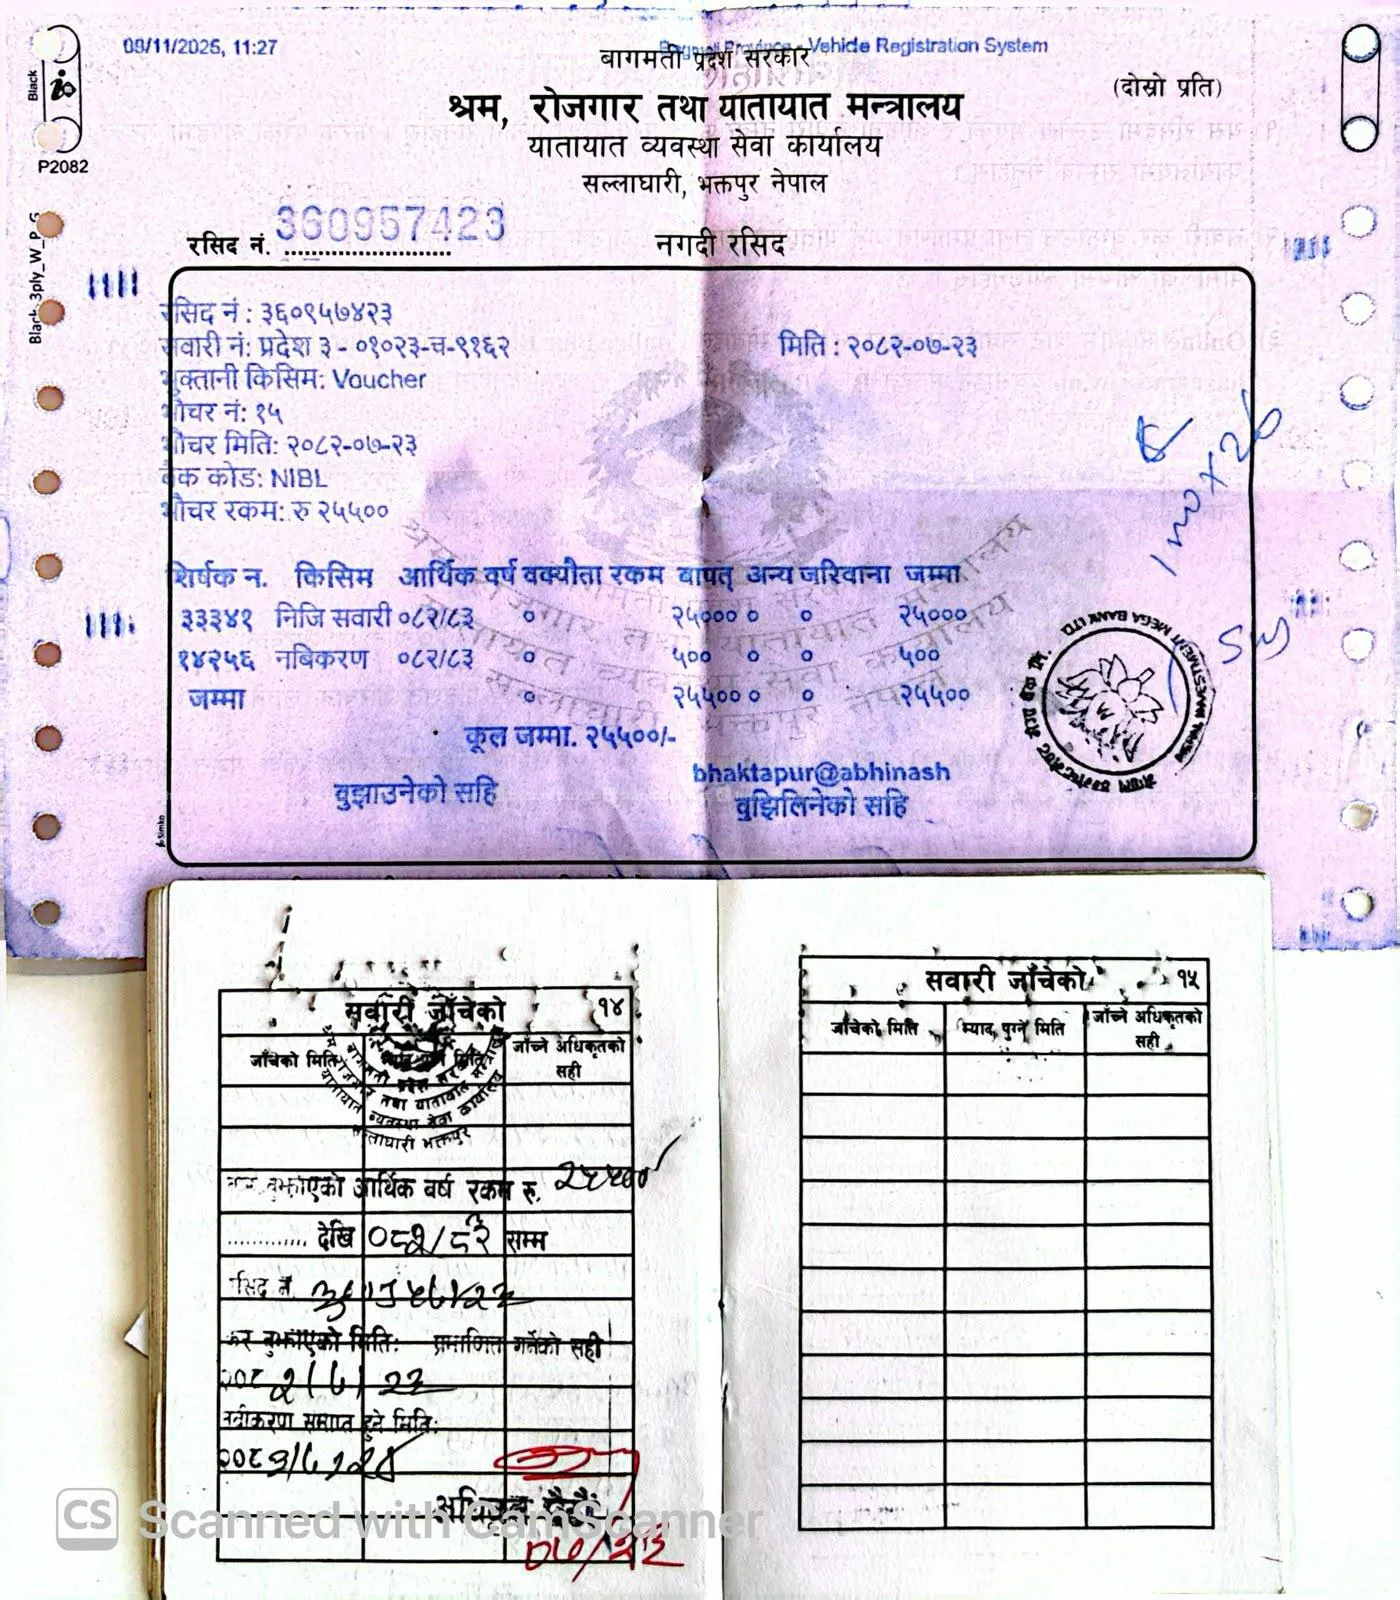 09/11/2025, 11:27
Bagmati Province - Vehicle Registration System
बागमती प्रदेश सरकार
(दोस्रो प्रति)
श्रम, रोजगार तथा यातायात मन्त्रालय
यातायात व्यवस्था सेवा कार्यालय
सल्लाघारी, भक्तपुर नेपाल
Black
P2082
Black 3ply_W_P_G
रसिद नं. 360957423
नगदी रसिद
रसिद नं : ३६०९५७४२३
सवारी नं: प्रदेश ३ - ०१०२३-च-९१६२
मिति : २०८२-०७-२३
भुक्तानी किसिम: Voucher
भौचर नं: १५
भौचर मिति: २०८२-०७-२३
बैंक कोड: NIBL
भौचर रकम: रु २५५००
शिर्षक न. किसिम आर्थिक वर्ष वक्यौता रकम बापत् अन्य जरिवाना जम्मा
३३३४१ निजि सवारी ०८२/८३ ० २५००० ० ० २५०००
१४२५६ नबिकरण ०८२/८३ ० ५०० ० ० ५००
जम्मा ० २५५०० ० ० २५५००
कूल जम्मा. २५५००/-
bhaktapur@abhinash
बुझाउनेको सहि
बुझिलिनेको सहि
सवारी जाँचेको १४
जाँचेको मिति
जाँच्ने अधिकृतको सही
बागमती प्रदेश सरकार
श्रम रोजगार तथा यातायात मन्त्रालय
यातायात व्यवस्था सेवा कार्यालय
सल्लाघारी भक्तपुर
कर बुझाएको आर्थिक वर्ष रकम रु. २५५००/
............. देखि ०८२/८३ सम्म
रसिद नं. ३६०९५७४२३
कर बुझाएको मिति: प्रमाणित गर्नेको सही
२०८२/७/२३
नवीकरण समाप्त हुने मिति:
०७/२३
सवारी जाँचेको १५
जाँचेको मिति
म्याद पुग्ने मिति
जाँच्ने अधिकृतको सही
CS Scanned with CamScanner